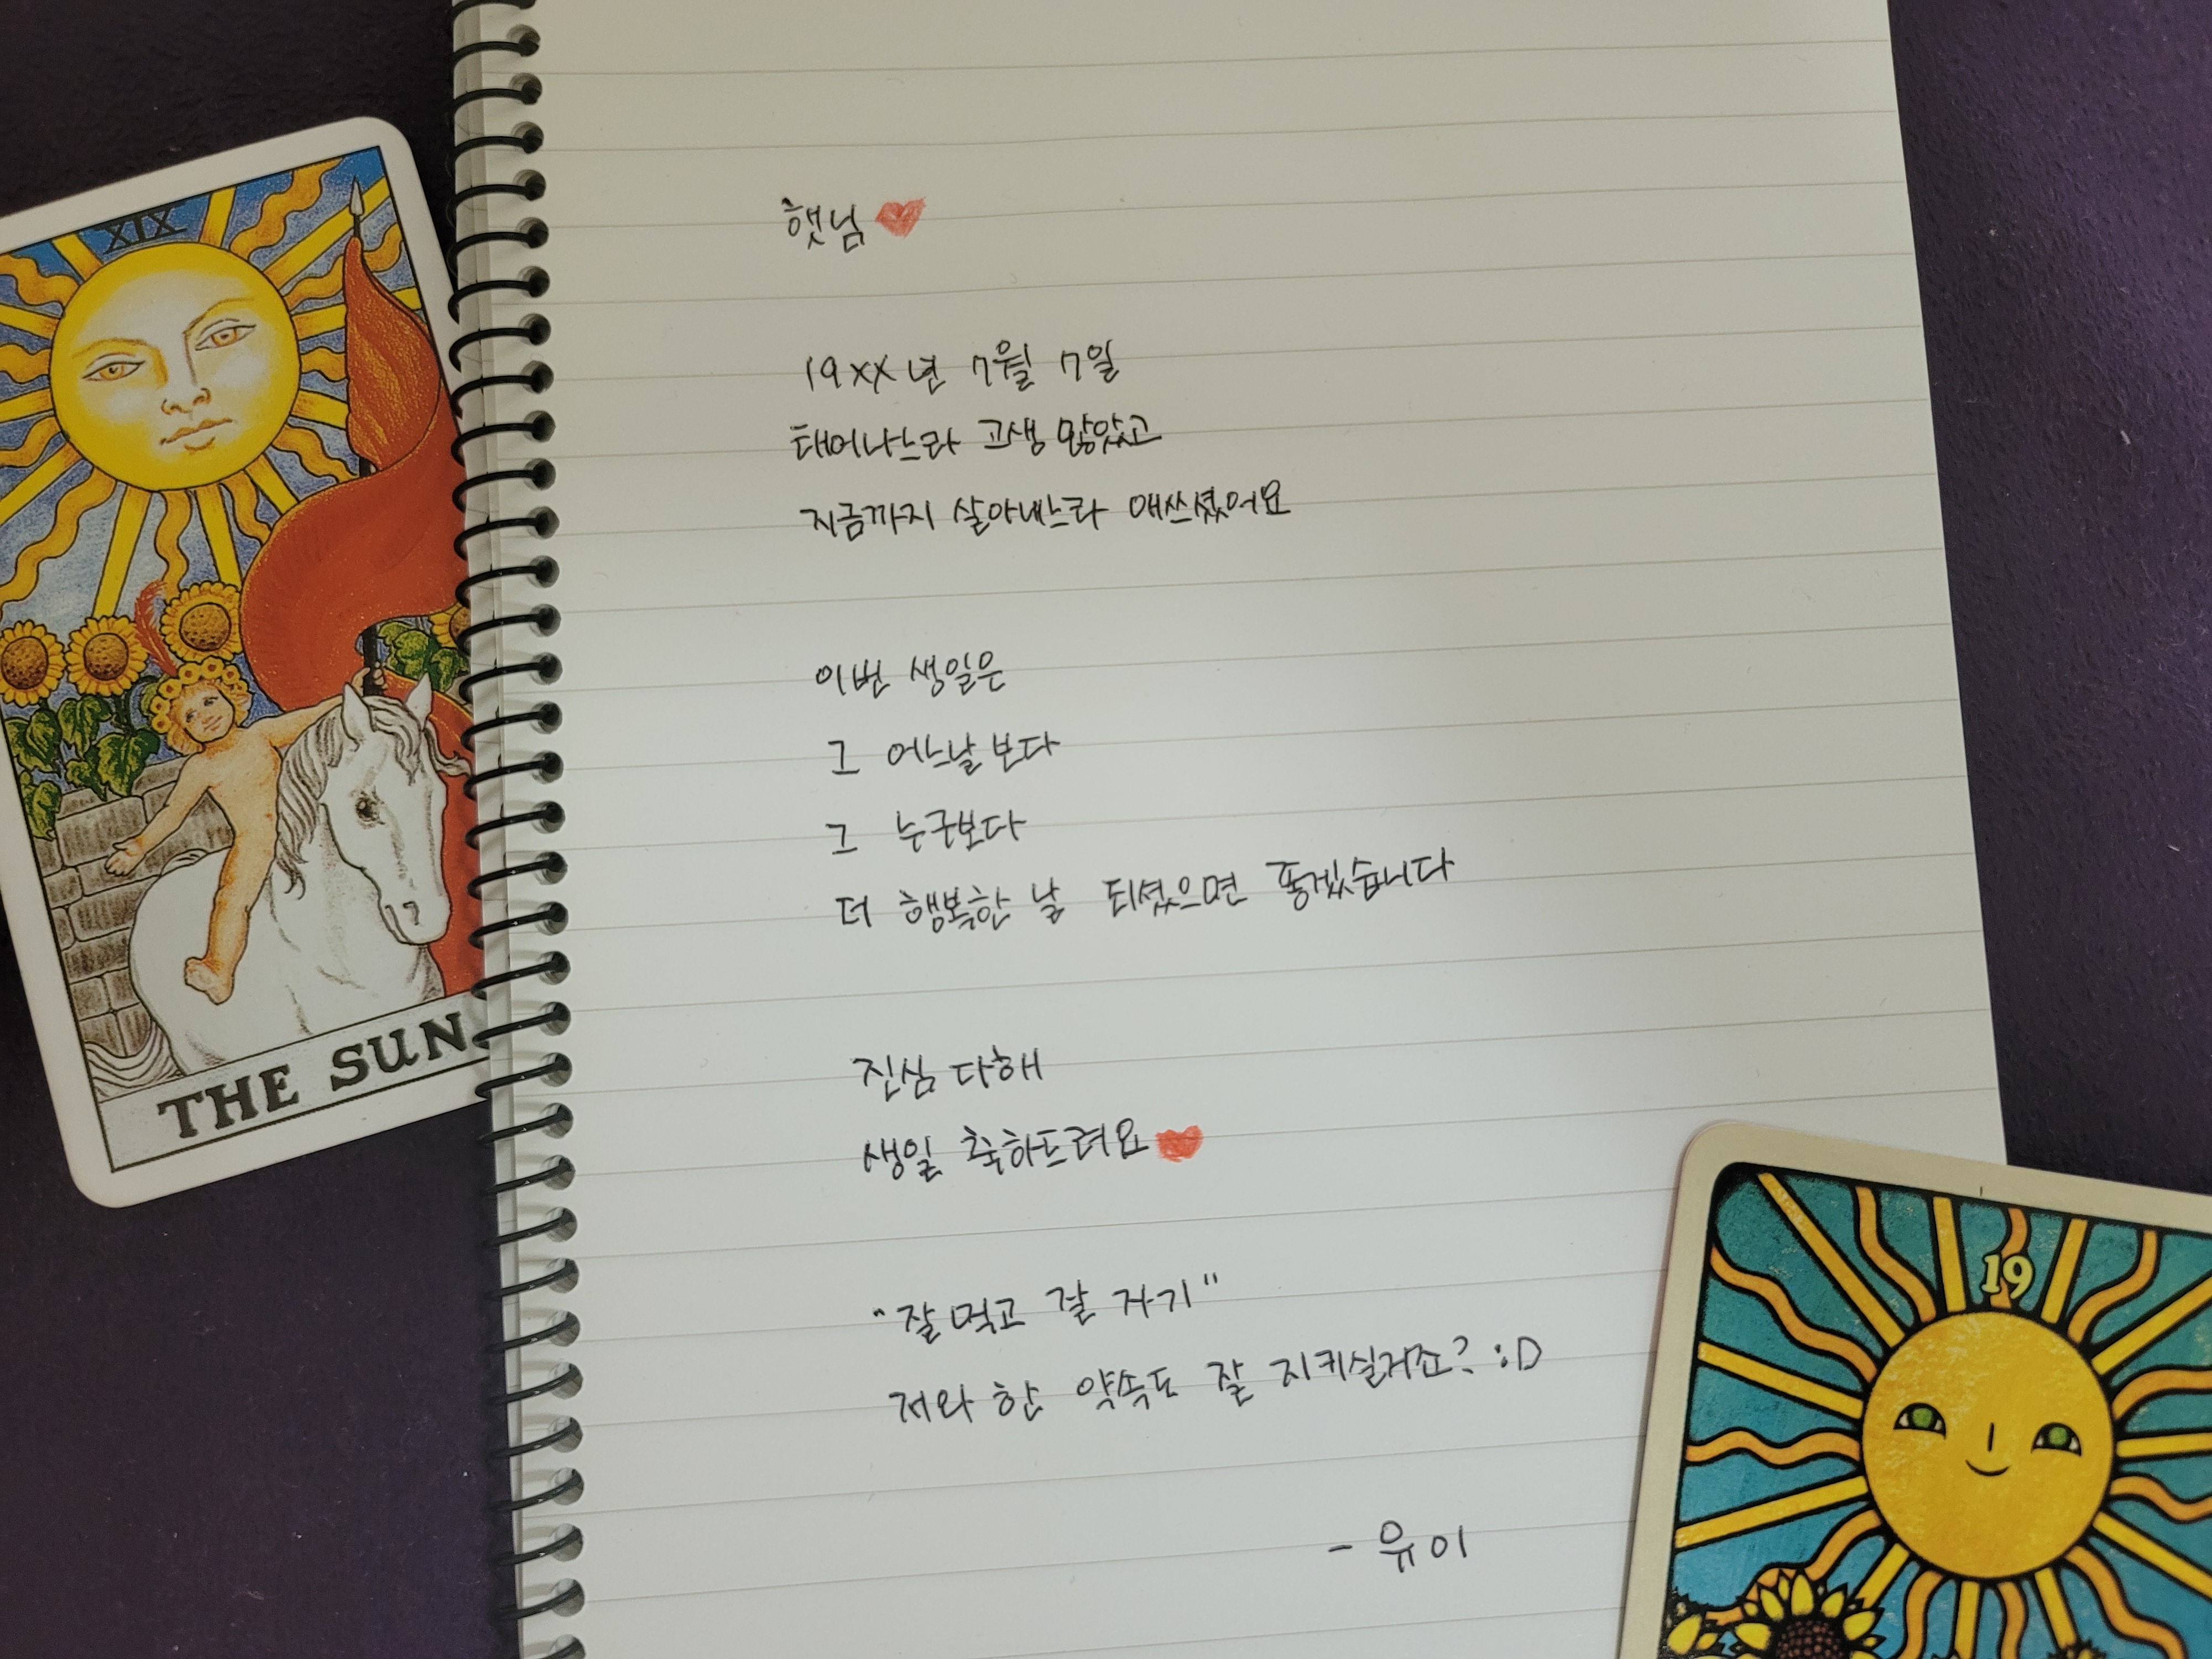 XIX
THE SUN.
햇님❤
19XX년 7월 7일
태어나느라 고생 많았고
지금까지 살아내느라 애쓰셨어요
이번 생일은
그 어느날보다
그 누구보다
더 행복한 날 되셨으면 좋겠습니다
진심 다해
생일 축하드려요❤
"잘 먹고 잘 자기"
저와 한 약속도 잘 지키실거죠? :D
- 유이
19